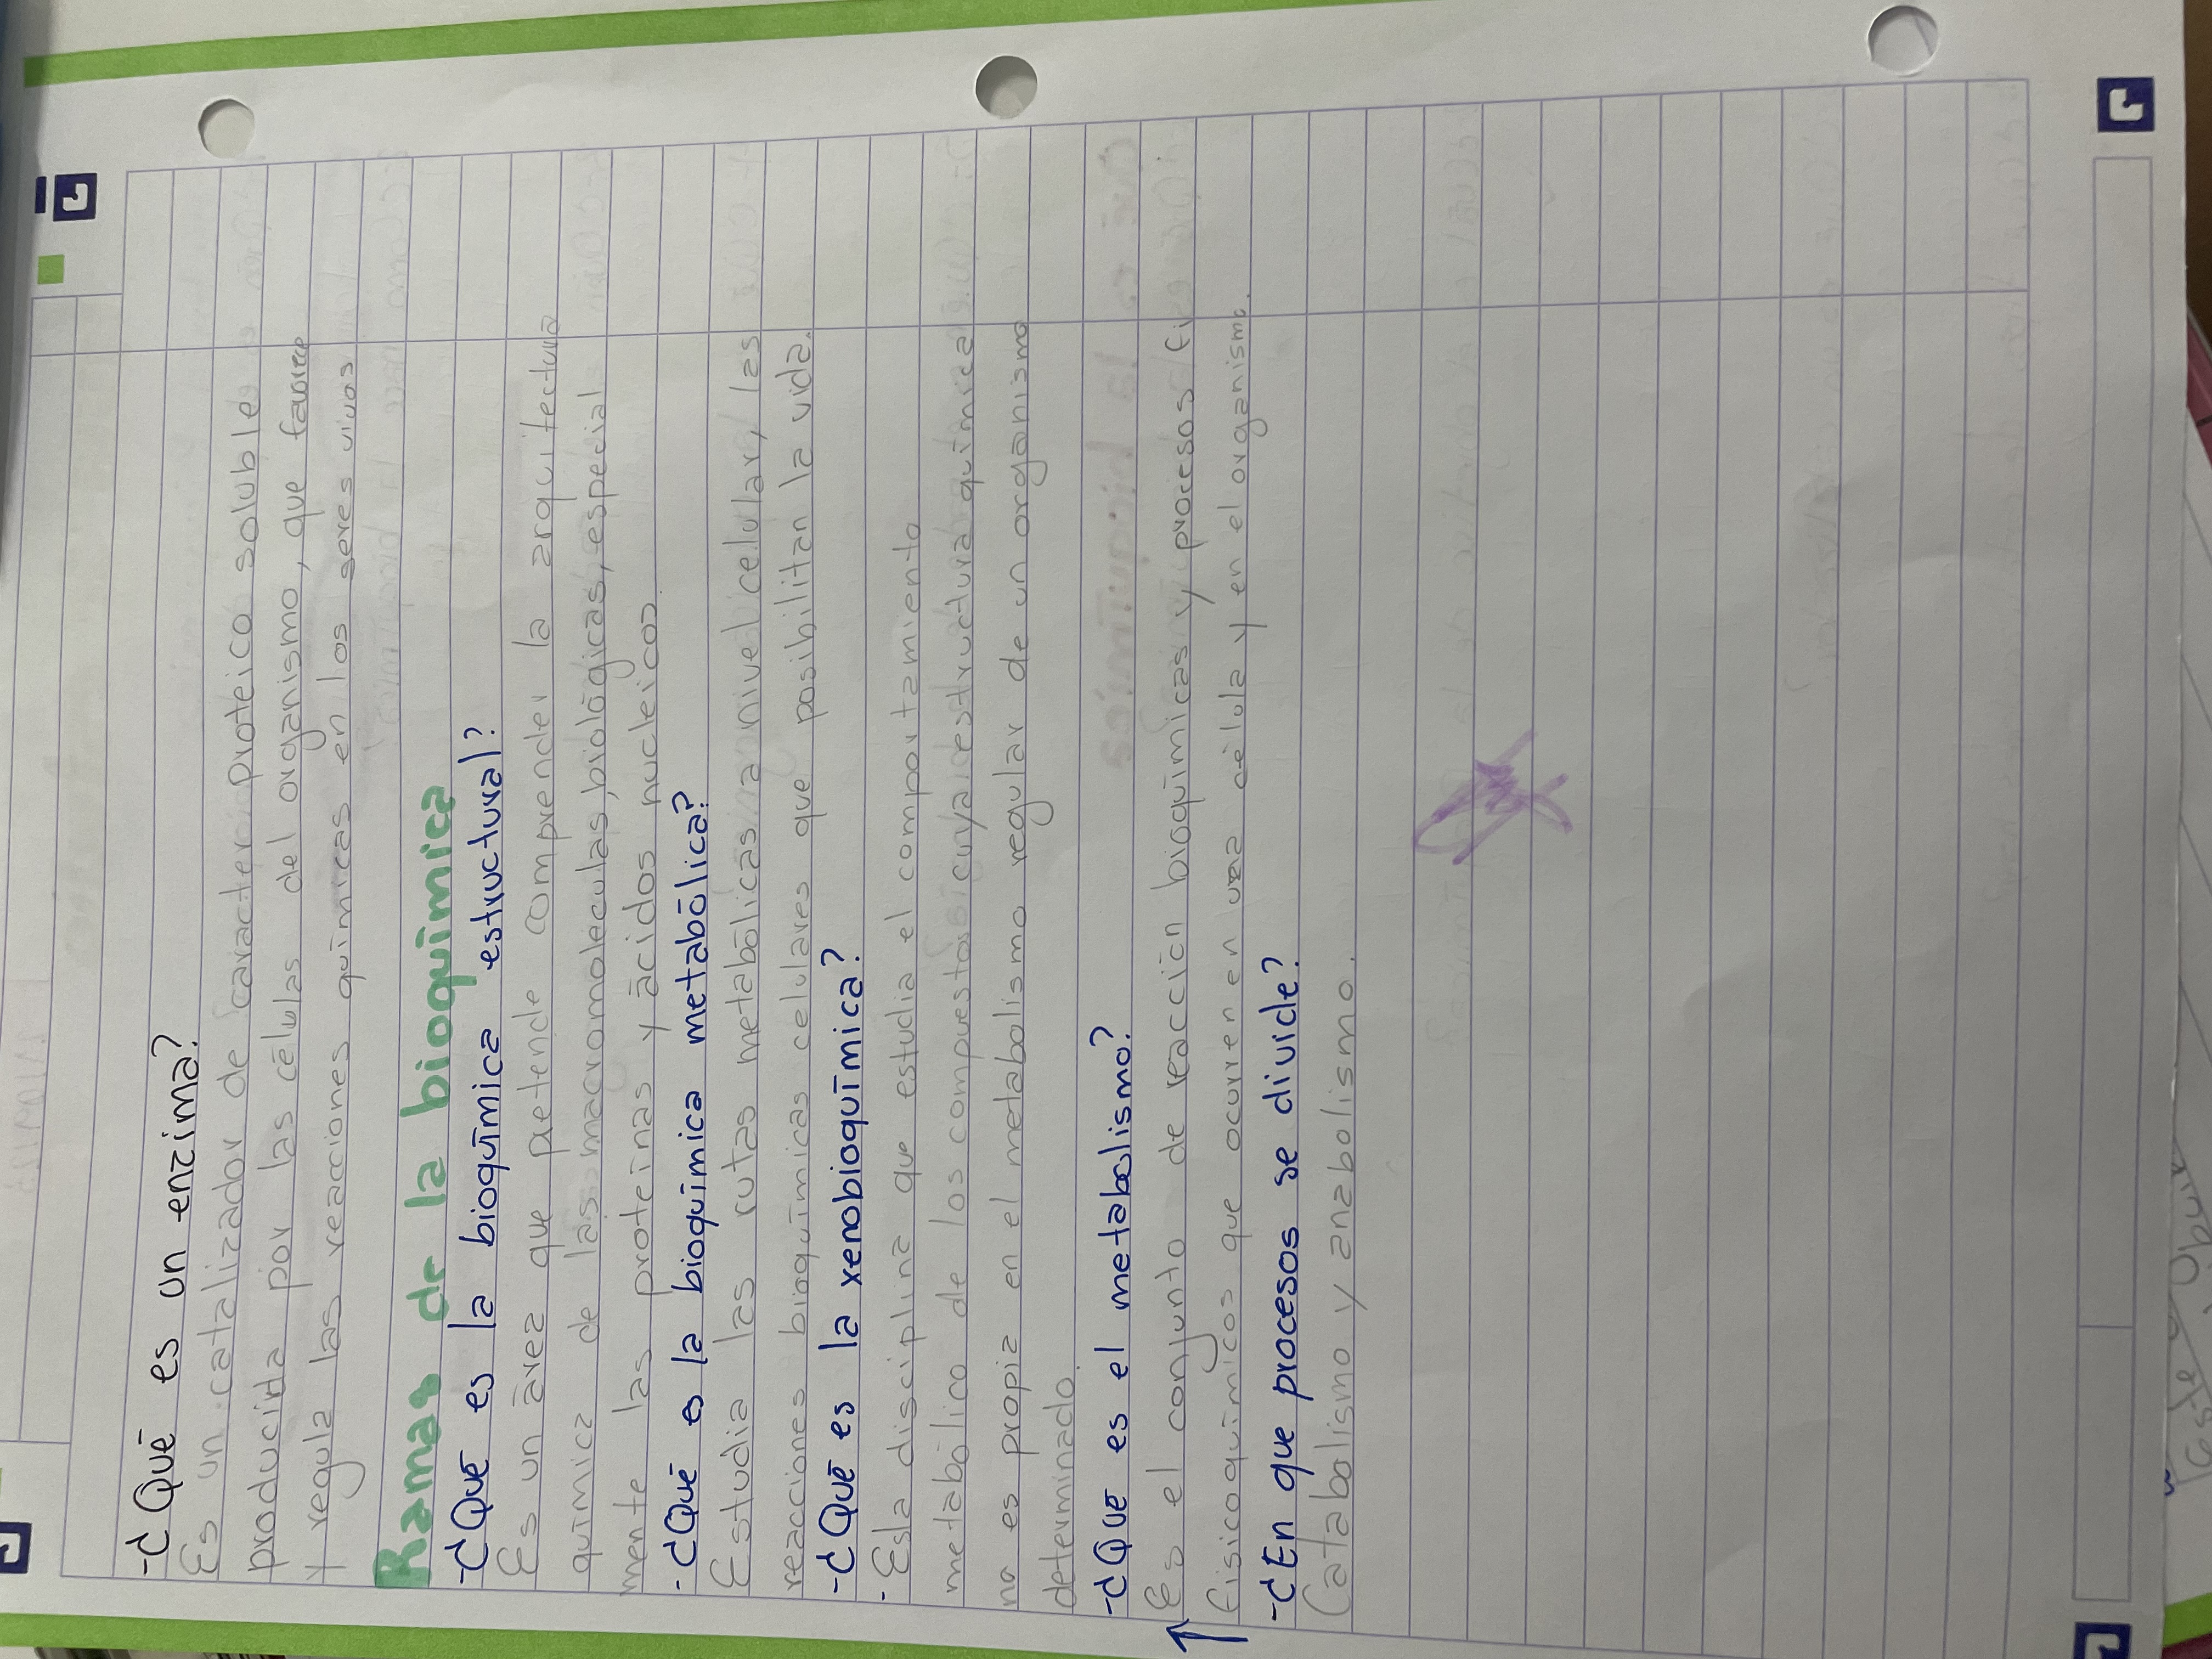 -¿Qué es un enzima?
Es un catalizador de caracter proteico soluble
producida por las células del organismo, que favorece
y regula las reacciones químicas en los seres vivos
Ramas de la bioquímica
-¿Qué es la bioquímica estructural?
Es un área que pretende comprender la arquitectura
química de las macromoléculas biológicas, especial
mente las proteínas y ácidos nucleicos.
-¿Qué es la bioquímica metabólica?
Estudia las rutas metabólicas a nivel celular, las
reacciones bioquímicas celulares que posibilitan la vida.
-¿Qué es la xenobioquímica?
· Esla disciplina que estudia el comportamiento
metabólico de los compuestos cuya estructura química
no es propia en el metabolismo regular de un organismo
determinado.
-¿Que es el metabolismo?
Es el conjunto de reacción bioquímicas y procesos fi
fisicoquímicos que ocurren en una célula y en el organismo.
-¿En que procesos se divide?
Catabolismo y anabolismo.